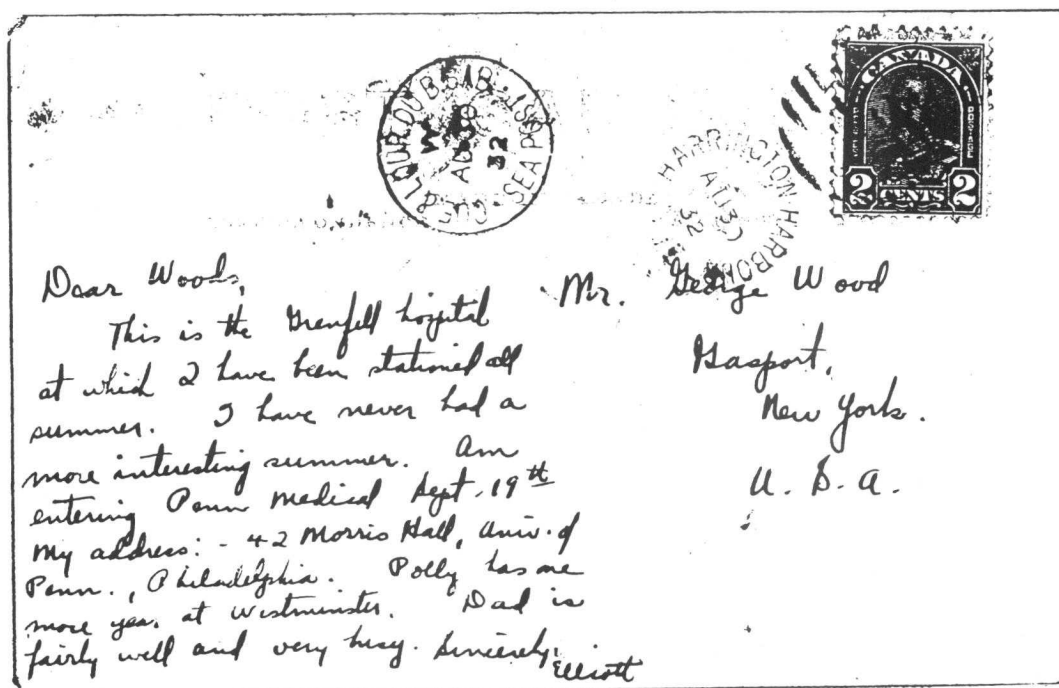 CANADA
POSTAGE
2 CENTS 2
HARRINGTON HARBOUR
32
QUE & LOUR. DU B. SAB. SEA POST
W
32
Dear Woods,
This is the Grenfell hospital
at which I have been stationed all
summer. I have never had a
more interesting summer. Am
entering Penn Medical Sept. 19th
My address: - 42 Morris Hall, Univ. of
Penn., Philadelphia. Polly has one
more year at Westminster. Dad is
fairly well and very busy. Sincerely,
Elliott
Mr. George Wood
Gasport,
New York.
U. S. A.